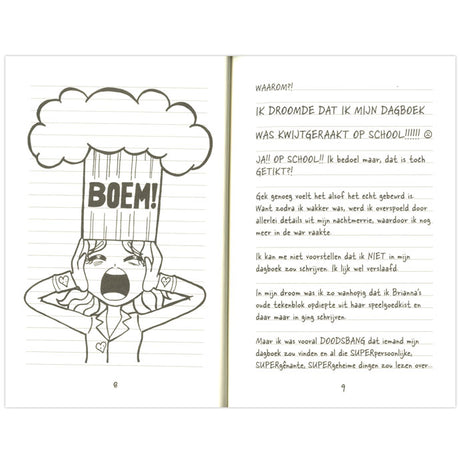 BOEM!
8
WAAROM?!
IK DROOMDE DAT IK MIJN DAGBOEK
WAS KWIJTGERAAKT OP SCHOOL!!!!!! ☹
JA!! OP SCHOOL!! Ik bedoel maar, dat is toch
GETIKT?!
Gek genoeg voelt het alsof het echt gebeurd is.
Want zodra ik wakker was, werd ik overspoeld door
allerlei details uit mijn nachtmerrie, waardoor ik nog
meer in de war raakte.
Ik kan me niet voorstellen dat ik NIET in mijn
dagboek zou schrijven. Ik lijk wel verslaafd.
In mijn droom was ik zo wanhopig dat ik Brianna's
oude tekenblok opdiepte uit haar speelgoedkist en
daar maar in ging schrijven.
Maar ik was vooral DOODSBANG dat iemand mijn
dagboek zou vinden en al die SUPERpersoonlijke,
SUPERgênante, SUPERgeheime dingen zou lezen over
9